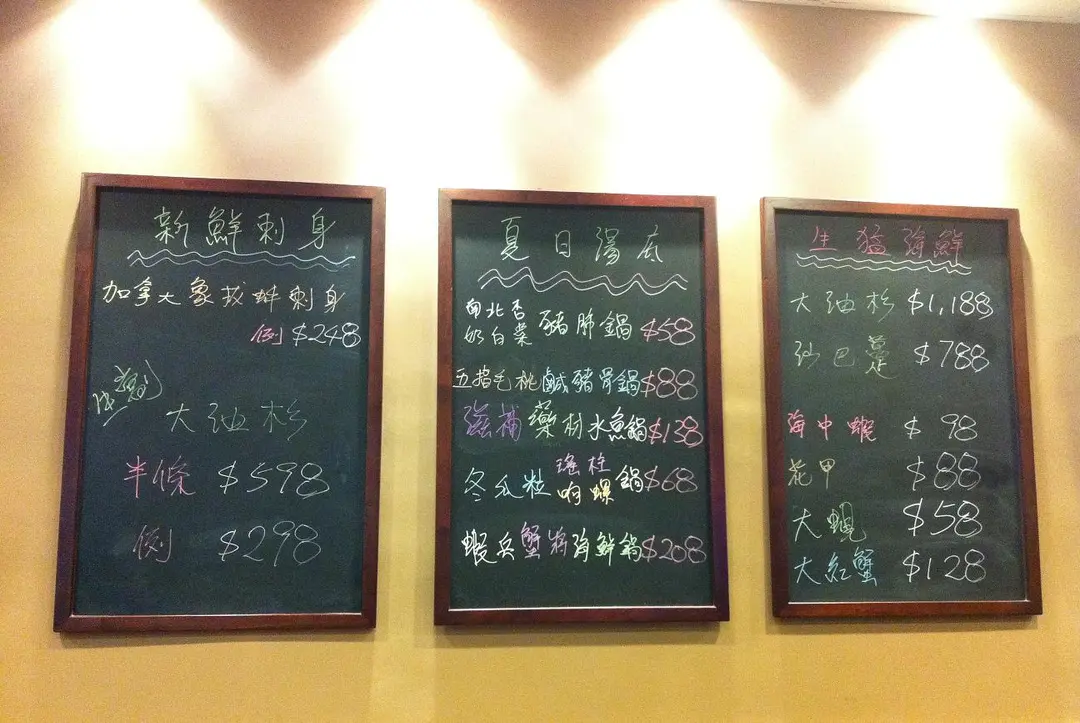 新鮮刺身
加拿大象拔蚌刺身
例 $248
大油杉
半條 $598
例 $298
夏日湯底
南北杏
奶白菜 豬肺鍋 $58
五指毛桃鹹豬骨鍋 $88
滋補藥材水魚鍋 $138
冬瓜粒瑤柱响螺鍋 $68
蝦兵蟹將海鮮鍋 $208
生猛海鮮
大油杉 $1,188
沙巴躉 $788
海中蝦 $98
花甲 $88
大蜆 $58
大紅蟹 $128